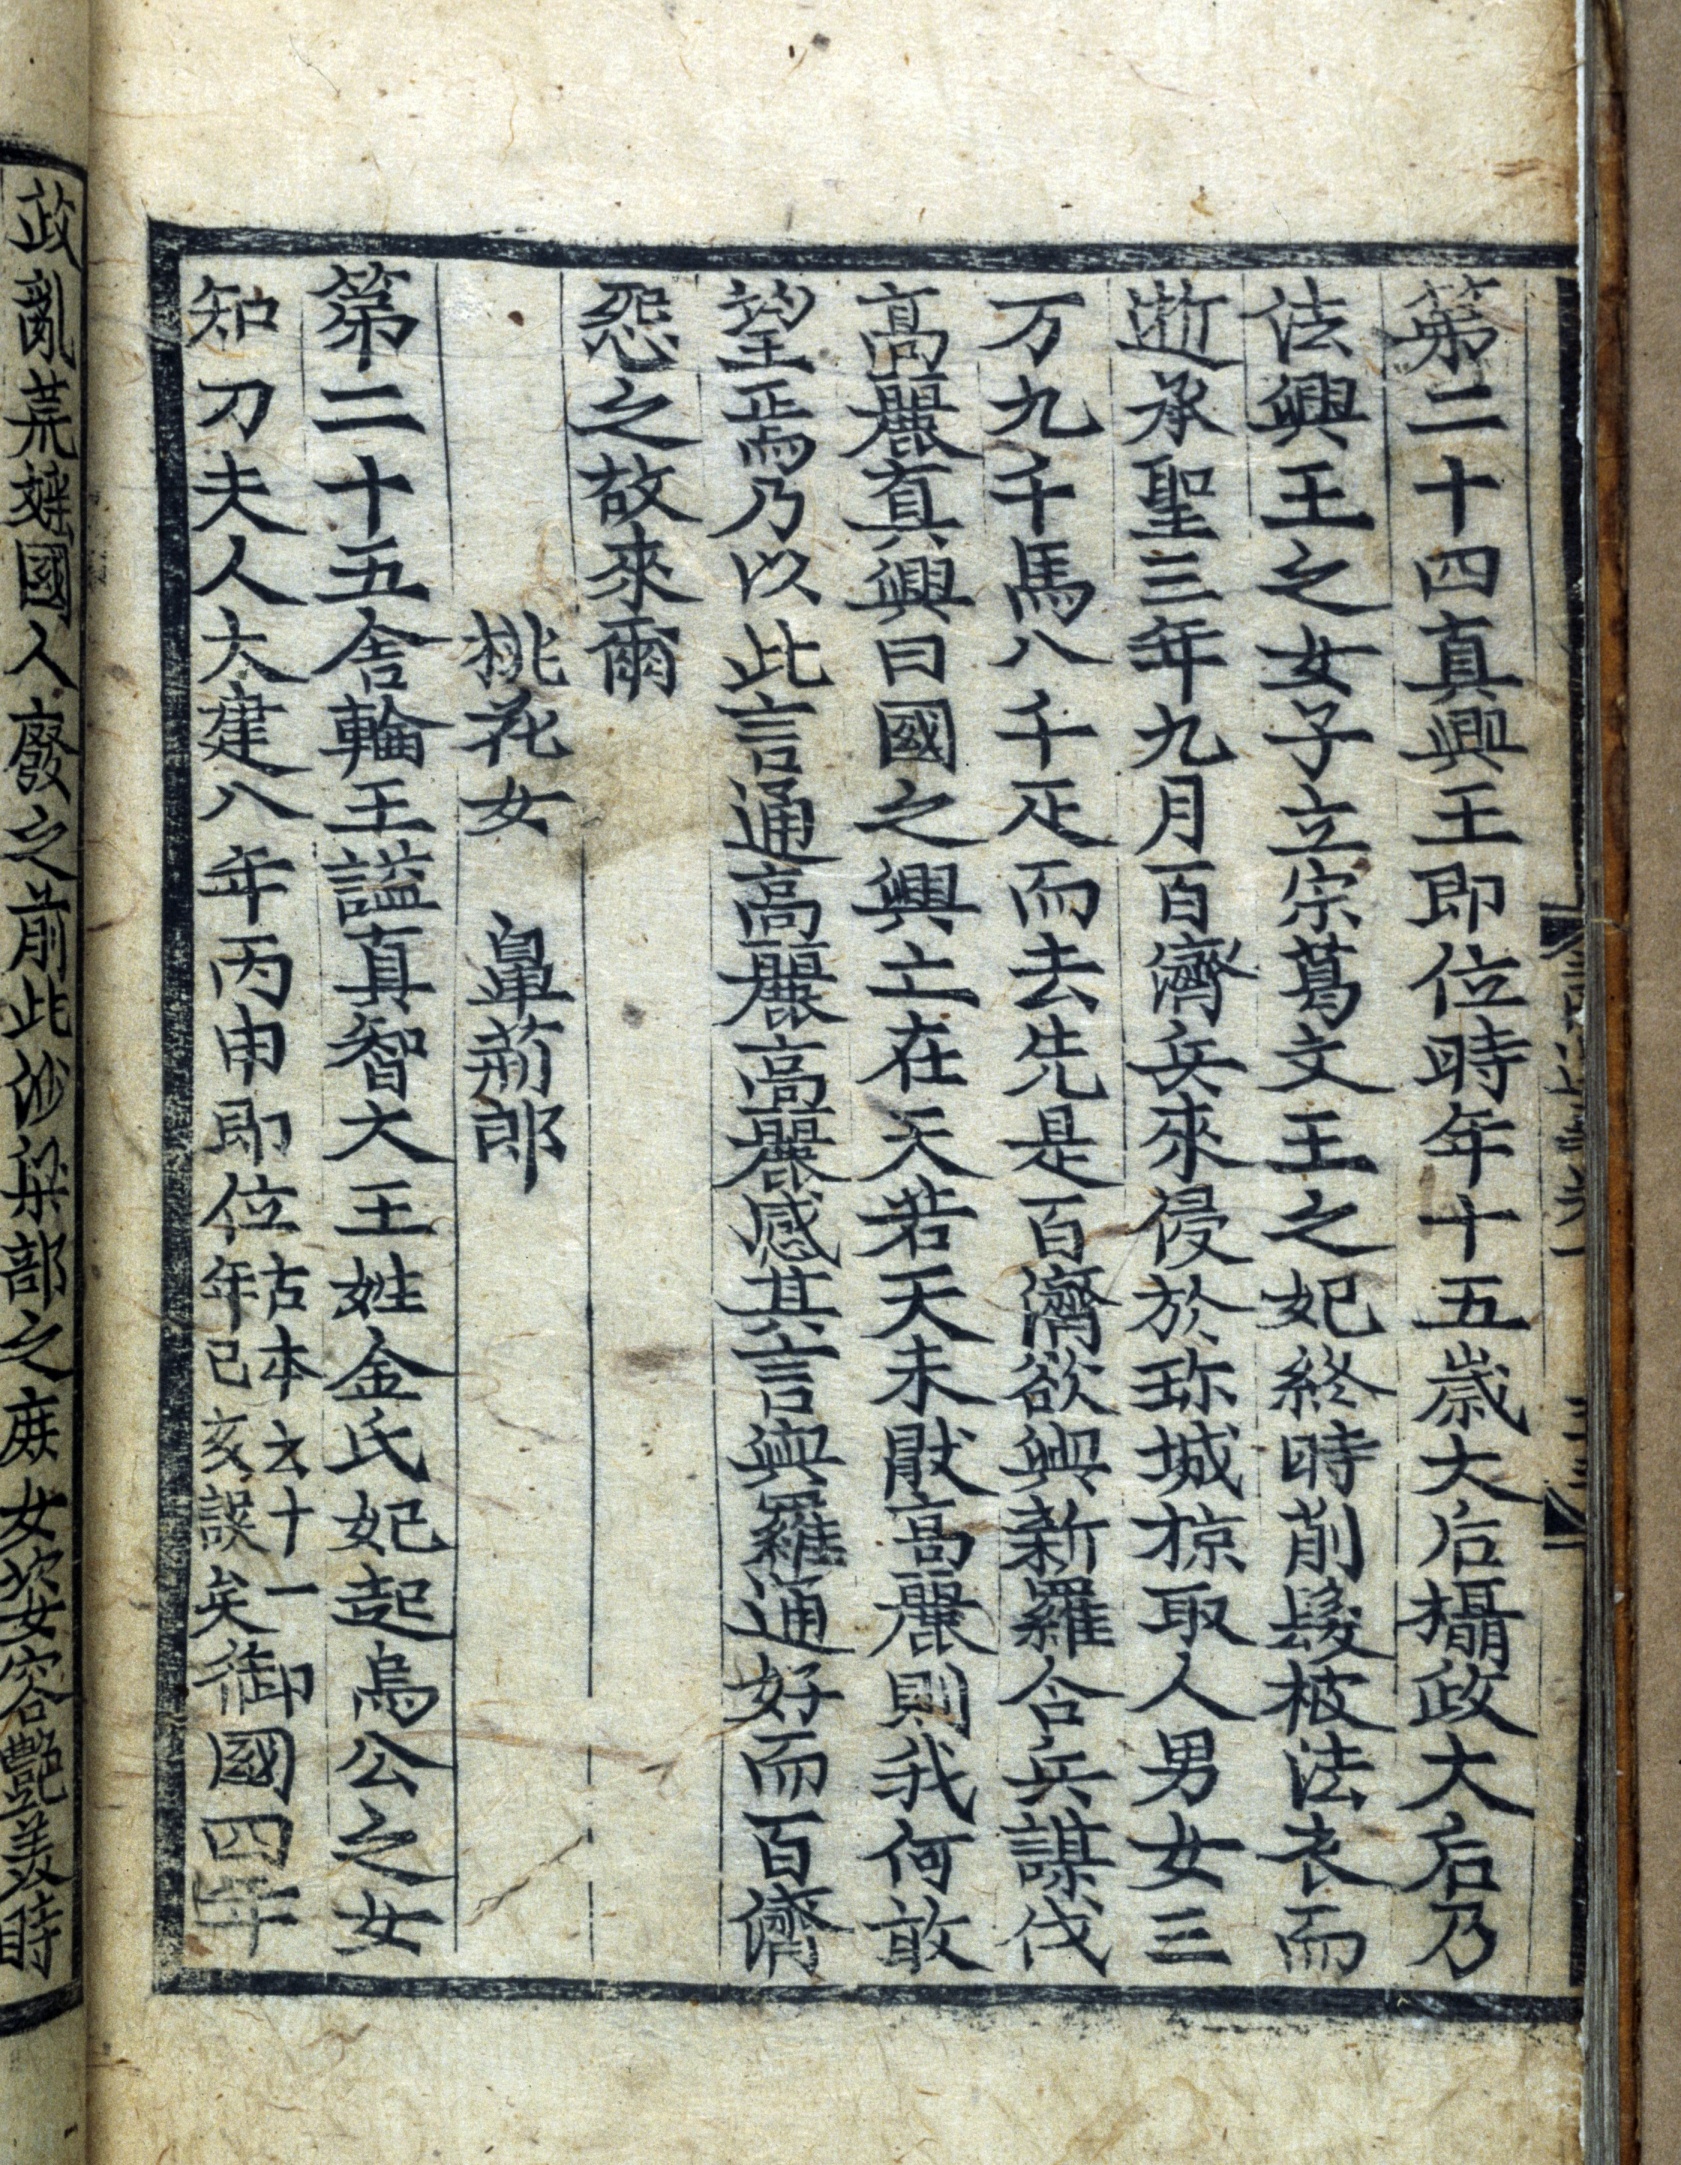 第二十四真興王即位時年十五歲大后攝政大后乃
法興王之女子立宗葛文王之妃終時削髮被法衣而
逝承聖三年九月百濟兵來侵於珎城掠取人男女三
万九千馬八千疋而去先是百濟欲與新羅合兵謀伐
高麗真興曰國之興亡在天若天未猒高麗則我何敢
望焉乃以此言通高麗高麗感其言與羅通好而百濟
怨之故來爾
桃花女 鼻荊郎
第二十五舍輪王謚真智大王姓金氏妃起烏公之女
知刀夫人大建八年丙申即位古本云十一年己亥誤矣御國四年
政亂荒婬國人廢之前此沙梁部之庶女姿容艶美時